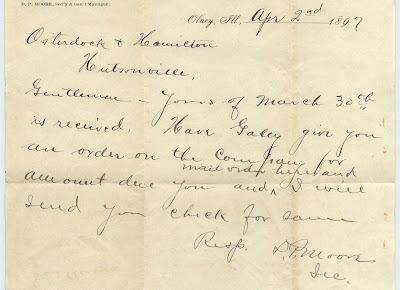 D. P. MOORE, Sec'y & Gen'l Manager.
Olney, Ill. Apr 2nd 1897
Osterdock & Hamilton
Hutsonville,
Gentlemen - Yours of March 30th
is received. Have Galey give you
an order on the Company for
mail order here and
amount due you and, I will
send you check for same
Resp. D.P. Moore
Sec.